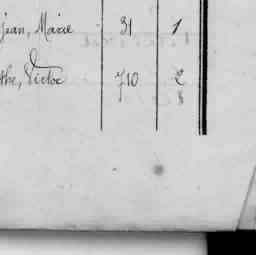 Jean, Marie 31 1
the, Victor 710 2